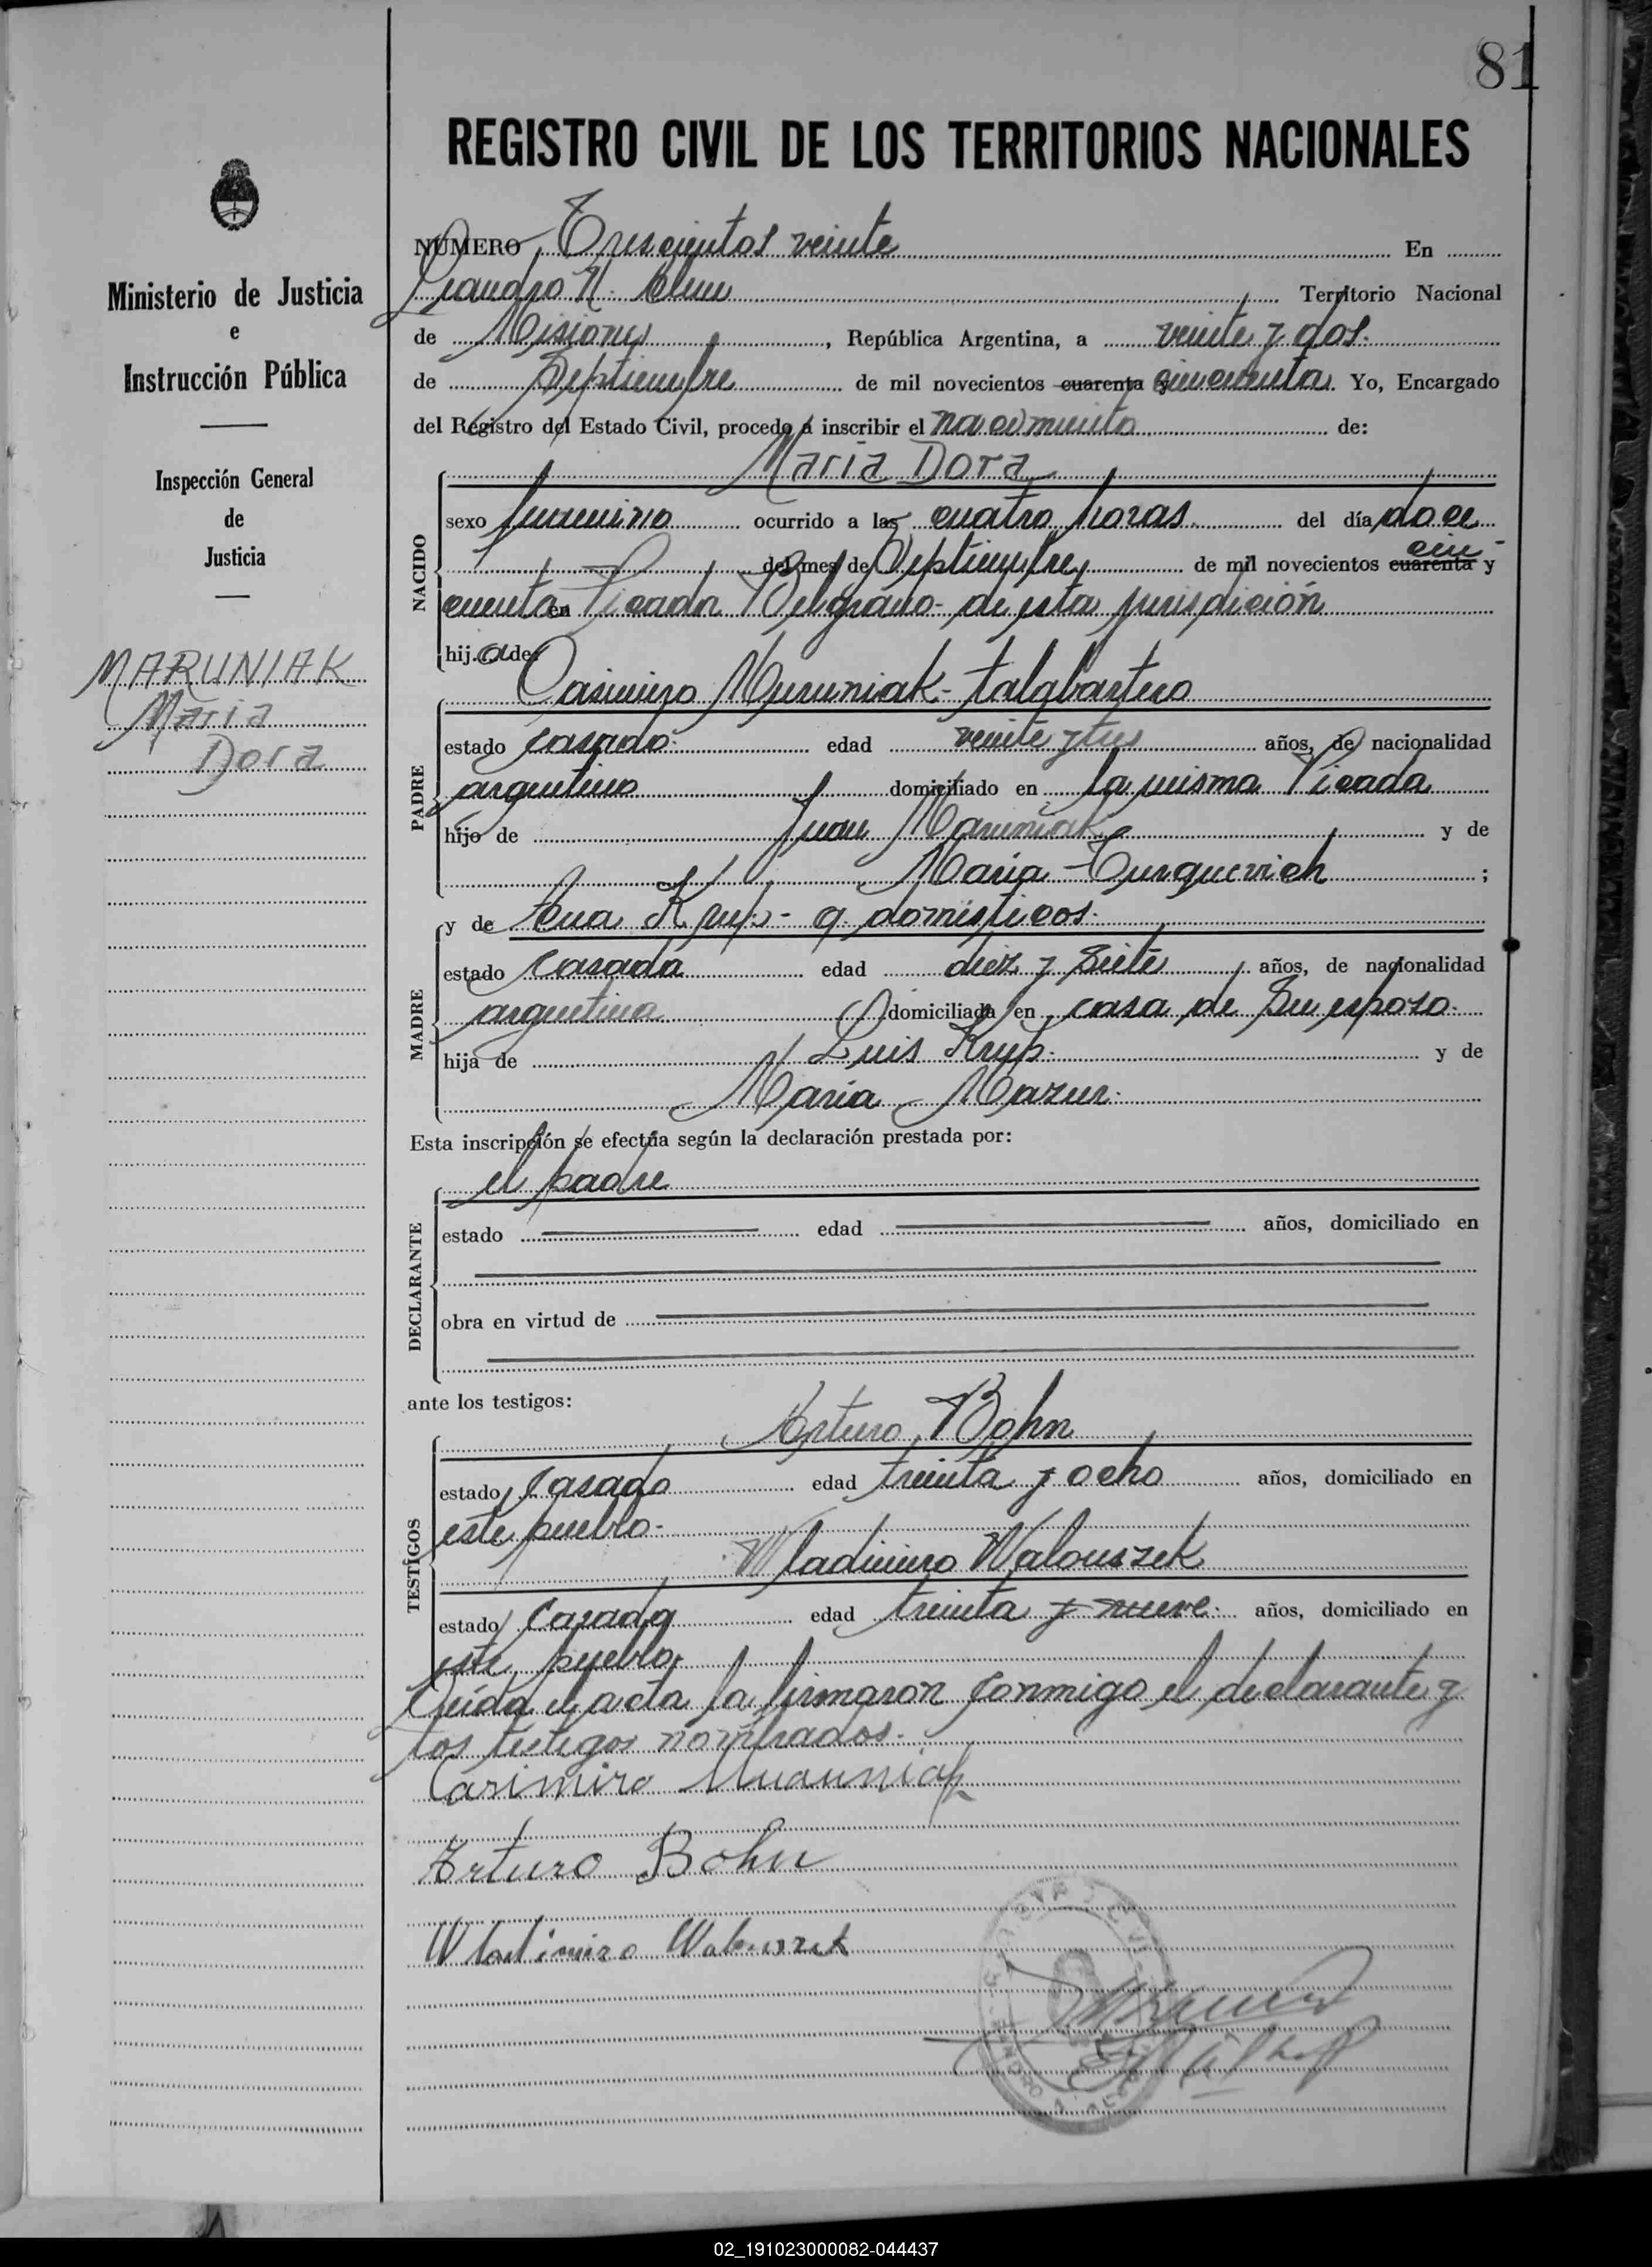 81
REGISTRO CIVIL DE LOS TERRITORIOS NACIONALES
Ministerio de Justicia
e
Instrucción Pública
Inspección General
de
Justicia
MARUNIAK
Maria
Dora
NÚMERO Trescientos veinte En
Leandro N. Alem Territorio Nacional
de Misiones, República Argentina, a veinte y dos.
de Septiembre de mil novecientos cuarenta y cincuenta. Yo, Encargado
del Registro del Estado Civil, procedo a inscribir el nacimiento de:
Maria Dora
NACIDO
sexo femenino ocurrido a las cuatro horas del día doce
del mes de Septiembre de mil novecientos cuarenta y cin-
cuenta en Picada Belgrano - de esta jurisdición
hija de:
Casimiro Muruniak - talabartero
PADRE
estado casado. edad veinte y tres años, de nacionalidad
argentino domiciliado en la misma Picada
hijo de Juan Maruniak y de
Maria Turquevich ;
MADRE
y de Ana Krup - q. domésticos.
estado casada edad diez y siete años, de nacionalidad
argentina domiciliada en casa de su esposo.
hija de Luis Krup. y de
María Mazur.
Esta inscripción se efectúa según la declaración prestada por:
el padre
DECLARANTE
estado edad años, domiciliado en
obra en virtud de
ante los testigos:
Arturo Bohn
TESTIGOS
estado casado edad treinta y ocho años, domiciliado en
este pueblo.
Wladimiro Walouszek
estado casado edad treinta y nueve. años, domiciliado en
este pueblo.
Leída el acta la firmaron conmigo el declarante y
los testigos nombrados.
Casimiro Muruniak
Arturo Bohn
Wladimiro Walouszek
02_191023000082-044437